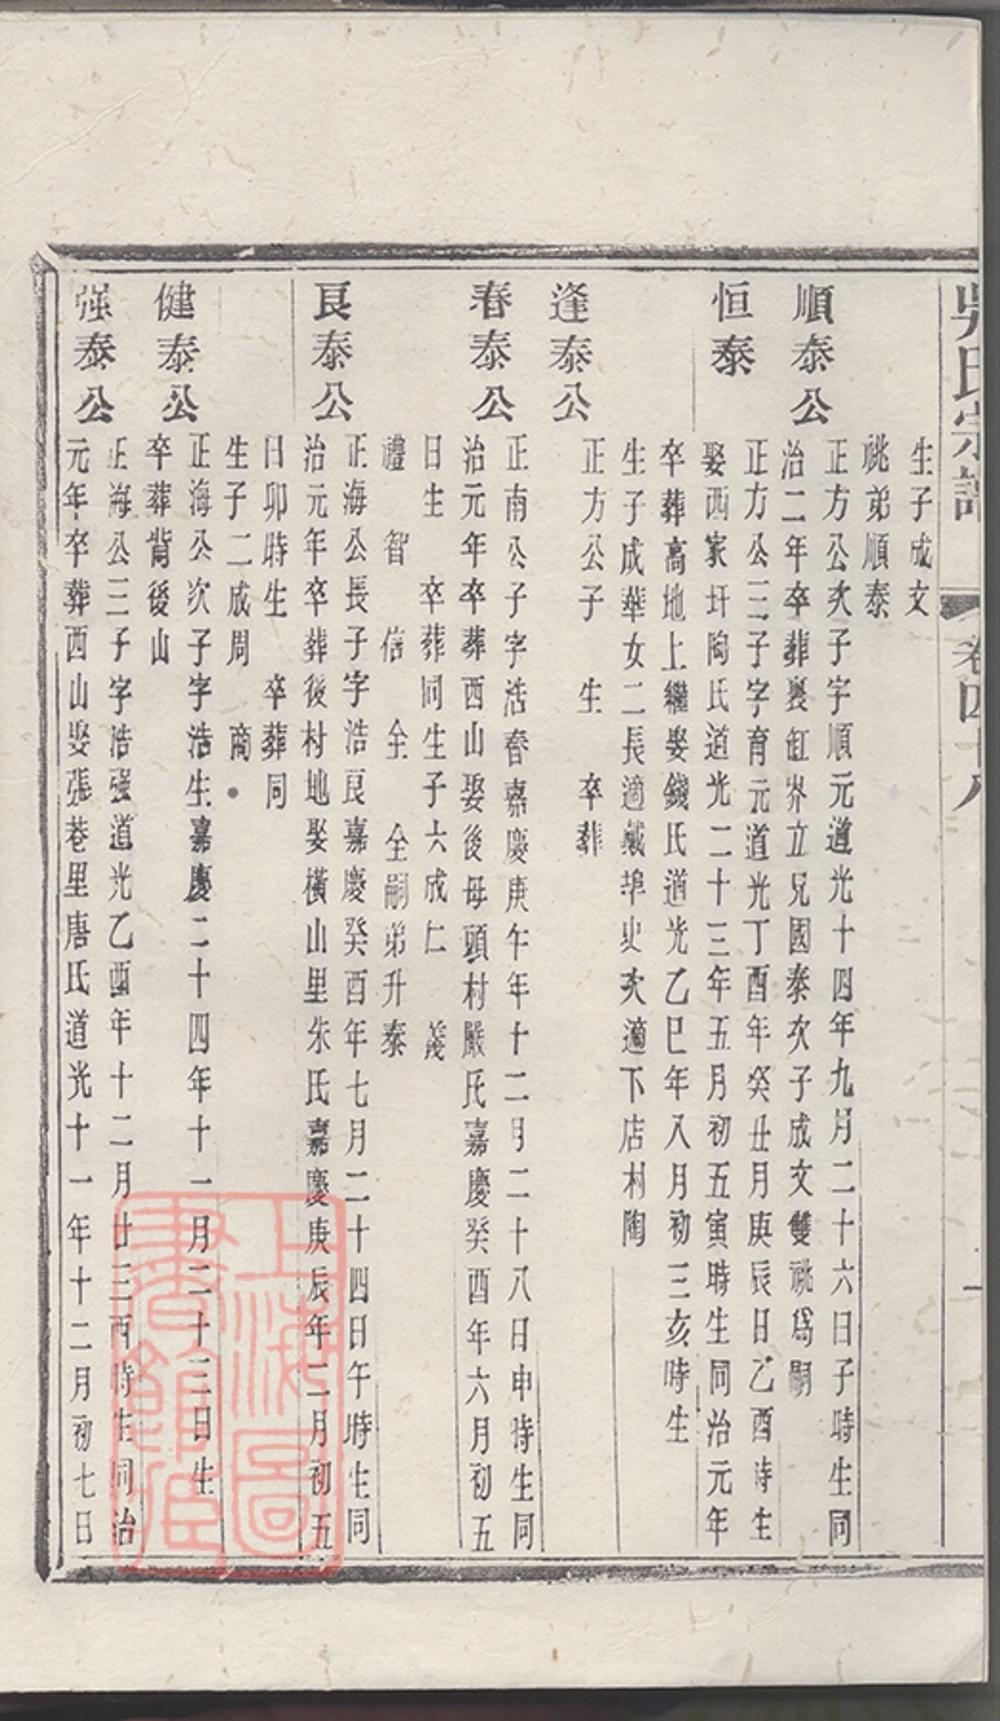 吳氏宗譜 卷四十八 一
生子成文
祧弟順泰
順泰公
正方公次子字順元道光十四年九月二十六日子時生同
治二年卒葬裏缸岕立兄國泰次子成文雙祧爲嗣
恒泰
正方公三子字育元道光丁酉年癸丑月庚辰日乙酉時生
娶西家圩陶氏道光二十三年五月初五寅時生同治元年
卒葬高地上繼娶錢氏道光乙巳年八月初三亥時生
生子成華女二長適戴埠史次適下店村陶
逢泰公
正方公子 生 卒葬
春泰公
正南公子字浩春嘉慶庚午年十二月二十八日申時生同
治元年卒葬西山娶後母頭村嚴氏嘉慶癸酉年六月初五
日生 卒葬同生子六成仁 義
禮 智 信 全 全嗣弟升泰
良泰公
正海公長子字浩良嘉慶癸酉年七月二十四日午時生同
治元年卒葬後村地娶橫山里朱氏嘉慶庚辰年二月初五
日卯時生 卒葬同
生子二成周 商
健泰公
正海公次子字浩生嘉慶二十四年十一月二十三日生
卒葬背後山
强泰公
正海公三子字浩强道光乙酉年十二月廿三酉時生同治
元年卒葬西山娶張巷里唐氏道光十一年十二月初七日
上海圖書館藏